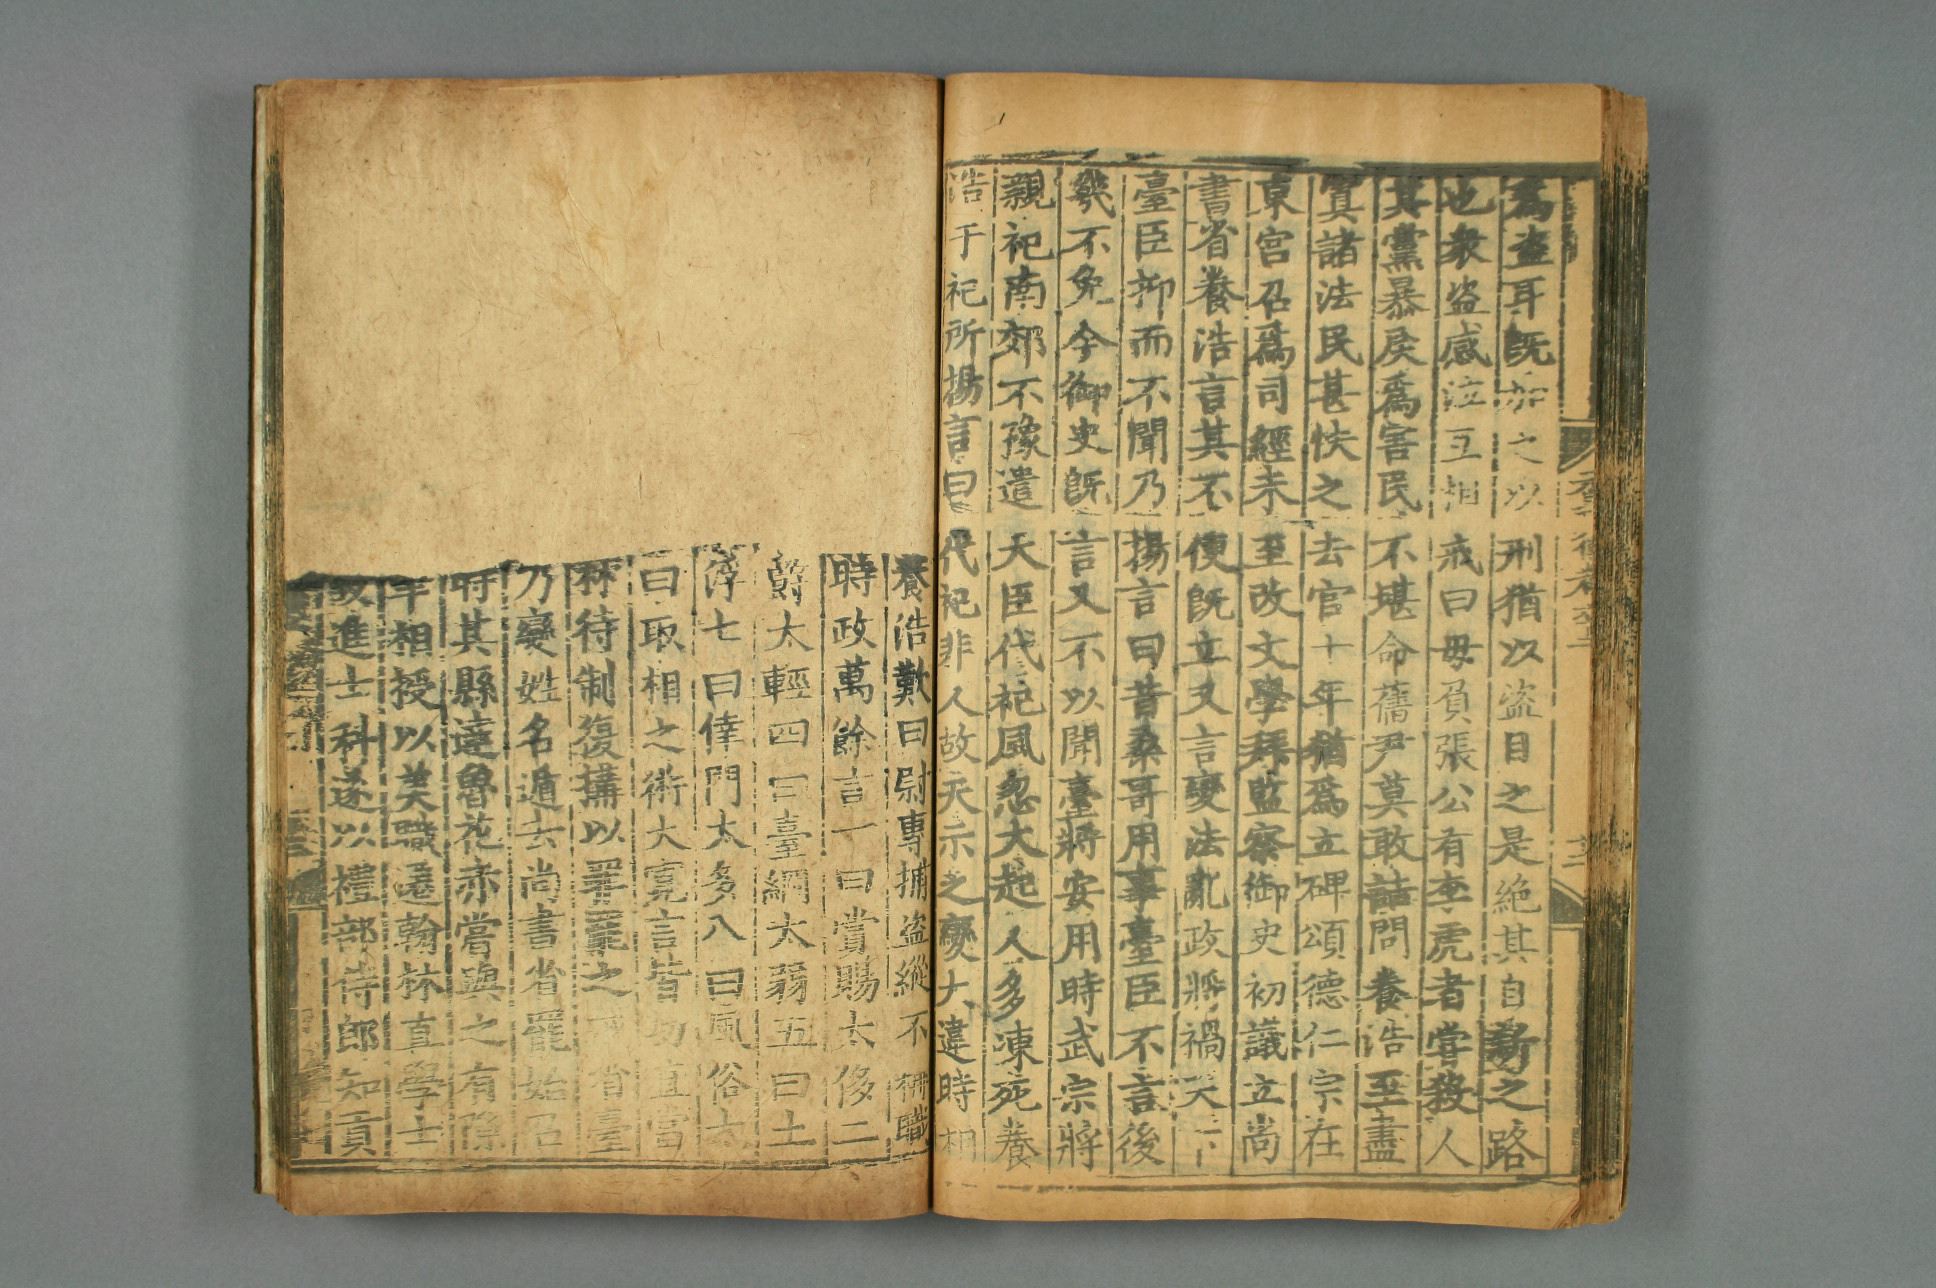 爲盗耳旣加之以刑猶以盗目之是絶其自新之路
也衆盗感泣互相戒曰毋負張公有李虎者嘗殺人
其黨暴戾爲害民不堪命舊尹莫敢詰問養浩至盡
寘諸法民甚快之去官十年猶爲立碑頌德仁宗在
東宫召爲司經未至改文學拜監察御史初議立尚
書省養浩言其不便旣立又言變法亂政將禍天下
臺臣抑而不聞乃揚言曰昔桑哥用事臺臣不言後
幾不免今御史旣言又不以聞臺將安用時武宗將
親祀南郊不豫遣大臣代祀風忽大起人多凍死養
浩于祀所揚言曰代祀非人故天示之變大違時相
養浩歎曰尉專捕盗縱不稱職
時政萬餘言一曰賞賜太侈二
爵太輕四曰臺綱太弱五曰土
浮七曰倖門太多八曰風俗太
曰取相之術太寛言皆切直當
林待制復搆以罪罷之戒省臺
乃變姓名遁去尚書省罷始召
時其縣達魯花赤嘗與之有隙
年相授以美職遷翰林直學士
設進士科遂以禮部侍郎知貢